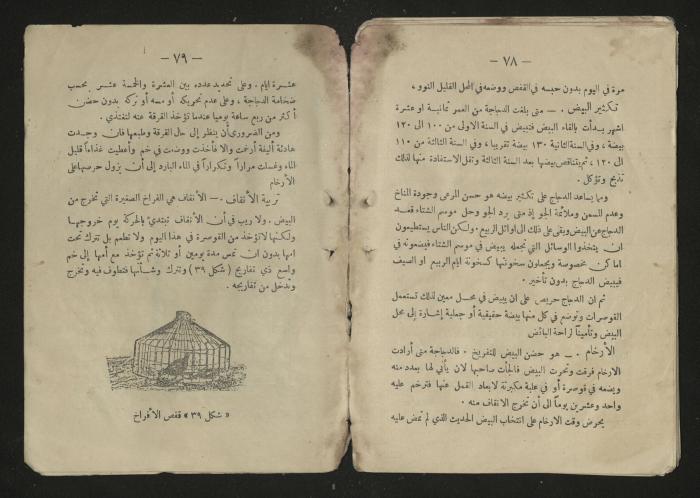 — ٧٨ —
مرة في اليوم بدون حبسه في القفص ووضعه في المحل القليل النور،
تكثير البيض . — متى بلغت الدجاجة من العمر ثمانية او عشرة
اشهر بدأت بالقاء البيض فتبيض في السنة الاولى من ١٠٠ الى ١٢٠
بيضة ، وفي السنة الثانية ١٣٠ بيضة تقريبا ، وفي السنة الثالثة من ١١٠
الى ١٢٠ ، ثم يتناقص بيضها بعد السنة الثالثة وتقل الاستفادة منها لذلك
تذبح وتؤكل .
ومما يساعد الدجاج على تكثير بيضه هو حسن المرعى وجودة المناخ
وعدم السمن وملائمة الجو إذ متى برد الجو وحل موسم الشتاء قعد
الدجاج عن البيض وبقى على ذلك الى اوائل الربيع ، ولكن الناس يستطيعون
ان يتخذوا الوسائل التي تجعله يبيض في موسم الشتاء فيضعونه في
اماكن مخصوصة ويجعلون سخونتها كسخونة ايام الربيع او الصيف
فيبيض الدجاج بدون تأخير .
ثم ان الدجاج حريص على ان يبيض في محل معين لذلك تستعمل
القوصرات وتوضع في كل منها بيضة حقيقية أو جعلية إشارة إلى محل
البيض وتأميناً لراحة البائض
الأرخام . — هو حضن البيض للتفريخ . فالدجاجة متى أرادت
الارخام قرقت وتحرت البيض فالجأت صاحبها لان يأتي لها بعدد منه
ويضعه في قوصرة أو في علبة مكبرتة لابعاد القمل عنها فترخم عليه
واحد وعشرين يوماً الى أن تخرج الانقاف منه .
يحرض وقت الارخام على انتخاب البيض الحديث الذي لم تمض عليه
— ٧٩ —
عشرة ايام . وعلى تحديد عدده بين العشرة والخمسة عشر بحسب
ضخامة الدجاجة ، وعلى عدم تحريكه أو مسه أو تركه بدون حضن
أكثر من ربع ساعة يوميا عندما تؤخذ القرقة عنه لتغتذي .
ومن الضروري أن ينظر إلى حال القرقة وطبعها فان وجدت
هادئة أليفة أرخمت والا فأخذت ووضعت في خم وأعطيت غذاءاً قليل
الماء وغسلت مراراً وتكراراً في الماء البارد إلى أن يزول حرصها على
الأرخام
تربية الأنقاف . — الأنقاف هي الفراخ الصغيرة التي تخرج من
البيض . ولا ريب في أن الأنقاف تبتدئ بالحركة يوم خروجها
ولكنها لا تؤخذ من القوصرة في هذا اليوم ولا تطعم بل تترك تحت
امها بدون ان تمس مدة يومين أو ثلاثة ثم تؤخذ مع أمها إلى خم
واسع ذي تفاريج ( شكل ٣٩ ) وتترك وشأنها فتطوف فيه وتخرج
وتدخل من تفاريجه .
« شكل ٣٩ » قفص الافراخ